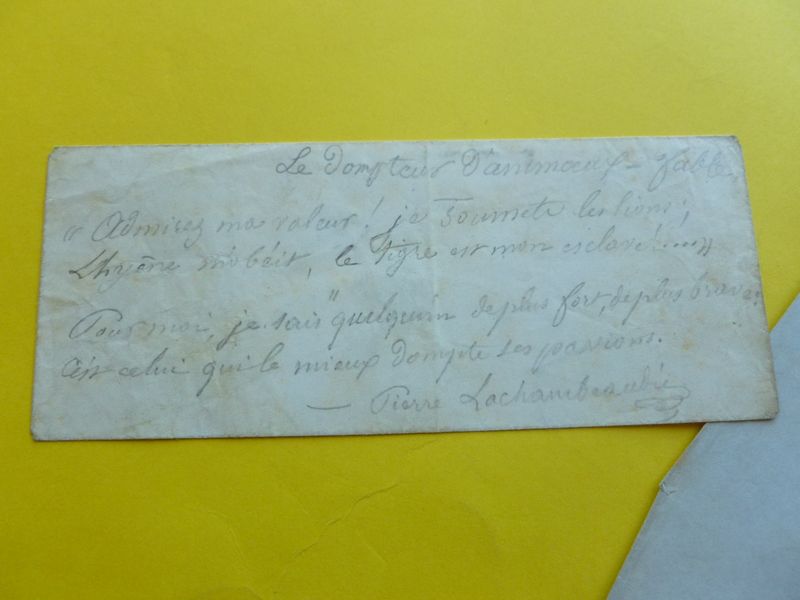 Le Dompteur D'animaux – fable
"Admirez ma valeur! je soumets les lions;
L'hyène m'obéit, le tigre est mon esclave!....."
Pour moi, je sais "quelqu'un de plus fort, de plus brave:
C'est celui qui le mieux dompte ses passions.
— Pierre Lachambeaudie